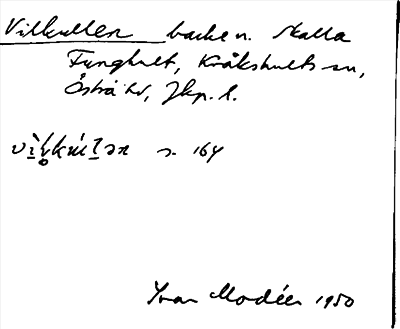 Vilkullen backe n. Skalla
Funghult, Kråkshults sn,
Östra hd, Jkp. l.
s. 164
Ivar Modéer 1950